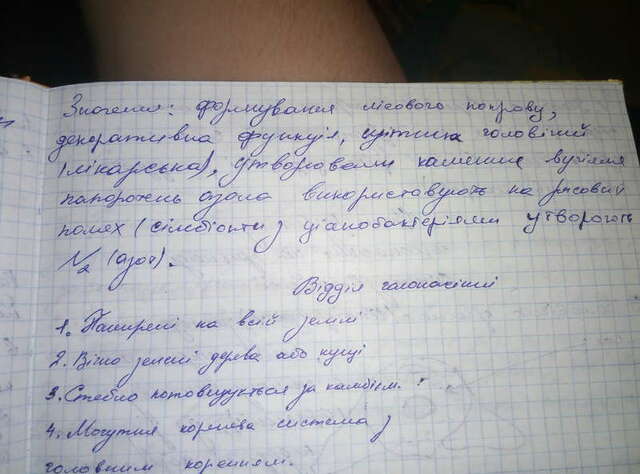 Значення: формування лісового покрову,
декоративна функція, щитник головіший
(лікарська), утворювали каменне вугілля
папороть азола використовують на рисових
полях (симбіонти з ціанобактеріями утворюють
N2 (азот).
Відділ голонасінні
1. Поширені на всій землі
2. Вічно зелені дерева або кущі
3. Стебло потовщується за камбієм.
4. Могутня коренева система з
головним коренням.